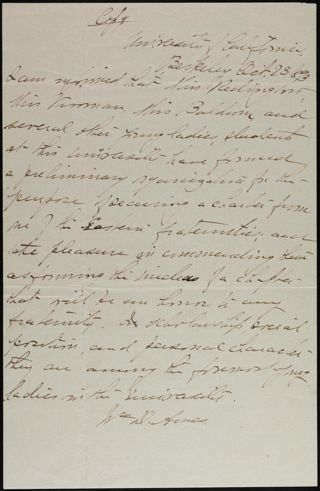 Copy
University of California,
Berkeley Oct. 23
I am informed that Miss
Miss Miss Baldwin and
several other young ladies, students
at this University have formed
a preliminary organization for the
purpose of securing a charter from
one of the Eastern fraternities, and
take pleasure in commending them
as forming the nucleus of a chapter
that will be an honor to any
fraternity. In scholarship, social
position, and personal character
they are among the foremost young
ladies in the University.
Wm. D. Armes